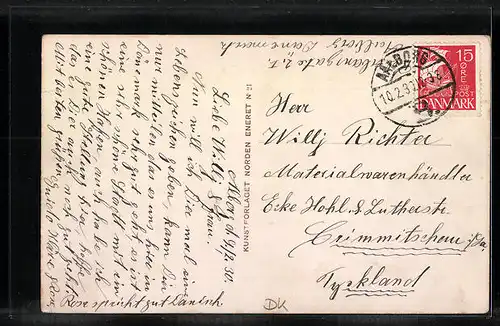 Aalborg d 9/2. 30.
Liebe Willy & Frau.
Nun will ich Dir mal ein
Lebenzeichen geben, kann Dir
nur mitteilen das es uns hier in
Dänemark sehr gut geht, es ist
eine sehr schöne Stadt mit ein
schönen Hafen, auch habe ich
eine gute Stellung hier, hoffe
das es Dir auch noch gut geht.
Mit besten Grüßen
Rosa spricht gut Dänish
KUNSTFORLAGET NORDEN ENERET Nº 21
Aalborg Danemark
AALBORG
10.2.30
15
ØRE
POST
DANMARK
Herr
Willy Richter
Materialwarenhändler
Ecke Hohl. & Lutherstr.
Crimmitschau i/Sa.
Tyskland
DK